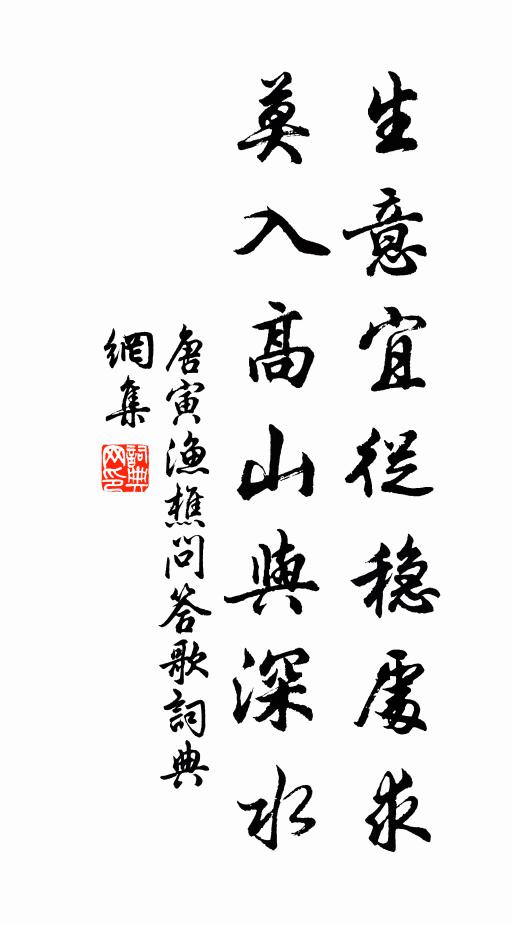 生意宜從穩處求
莫入高山與深水
唐寅漁樵問答歌詞典
網集
詞典
网印